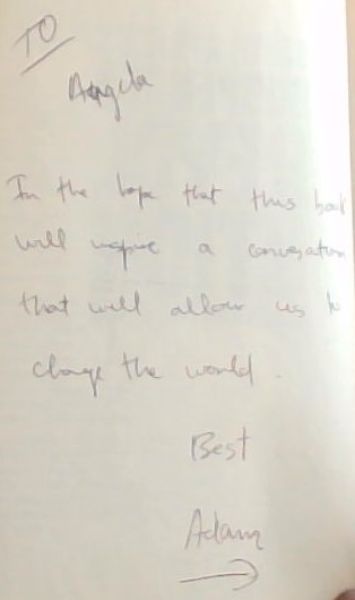 TO
Angela
In the hope that this book
will inspire a conversation
that will allow us to
change the world.
Best
Adam